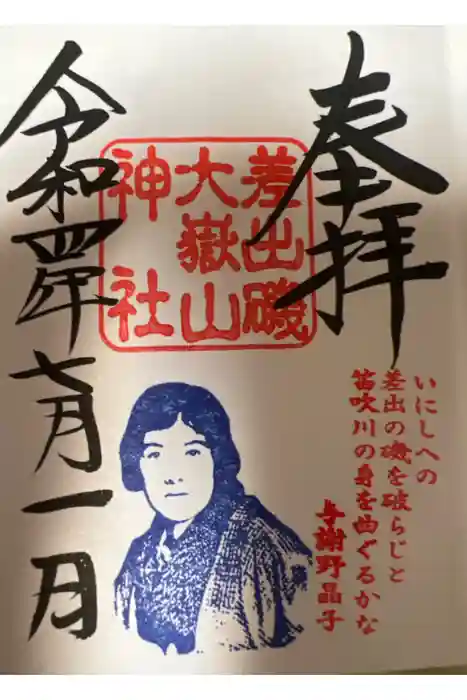 奉拝
差出磯
大嶽山
神社
いにしへの
差出の磯を破らじと
笛吹川の身を曲ぐるかな
与謝野晶子
令和四年七月一日